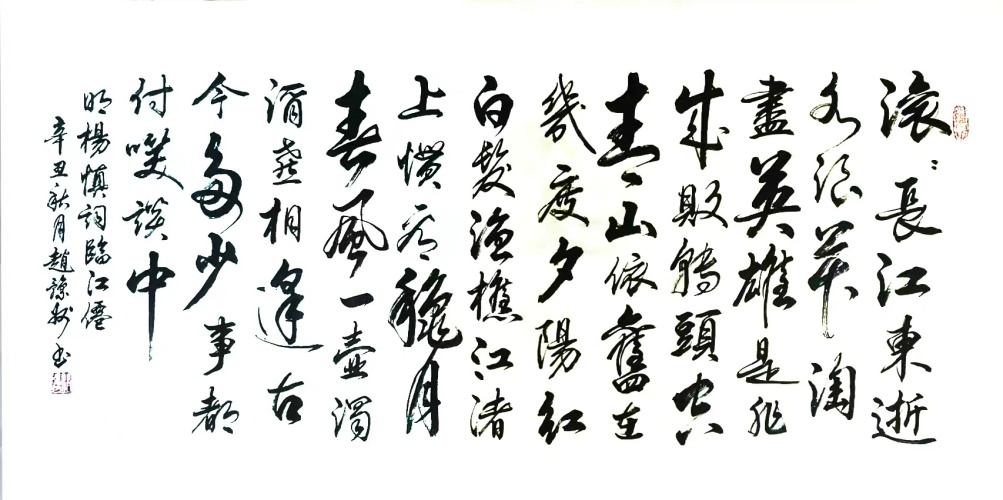 滚〻長江東逝
水浪花淘
盡英雄是非
成敗轉頭空
青山依舊在
幾度夕陽紅
白髮漁樵江渚
上慣看穐月
春風一壺濁
酒喜相逢古
今多少事都
付笑談中
明楊慎詞臨江僊
辛丑秋月趙书